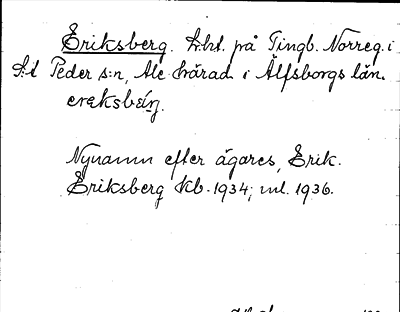 Eriksberg. Lht. på Tingb. Norreg. i
St Peder s:n, Ale härad i Älfsborgs län.
ereksbærj.
Nynamn efter ägares, Erik.
Eriksberg Kb. 1934; ml. 1936.